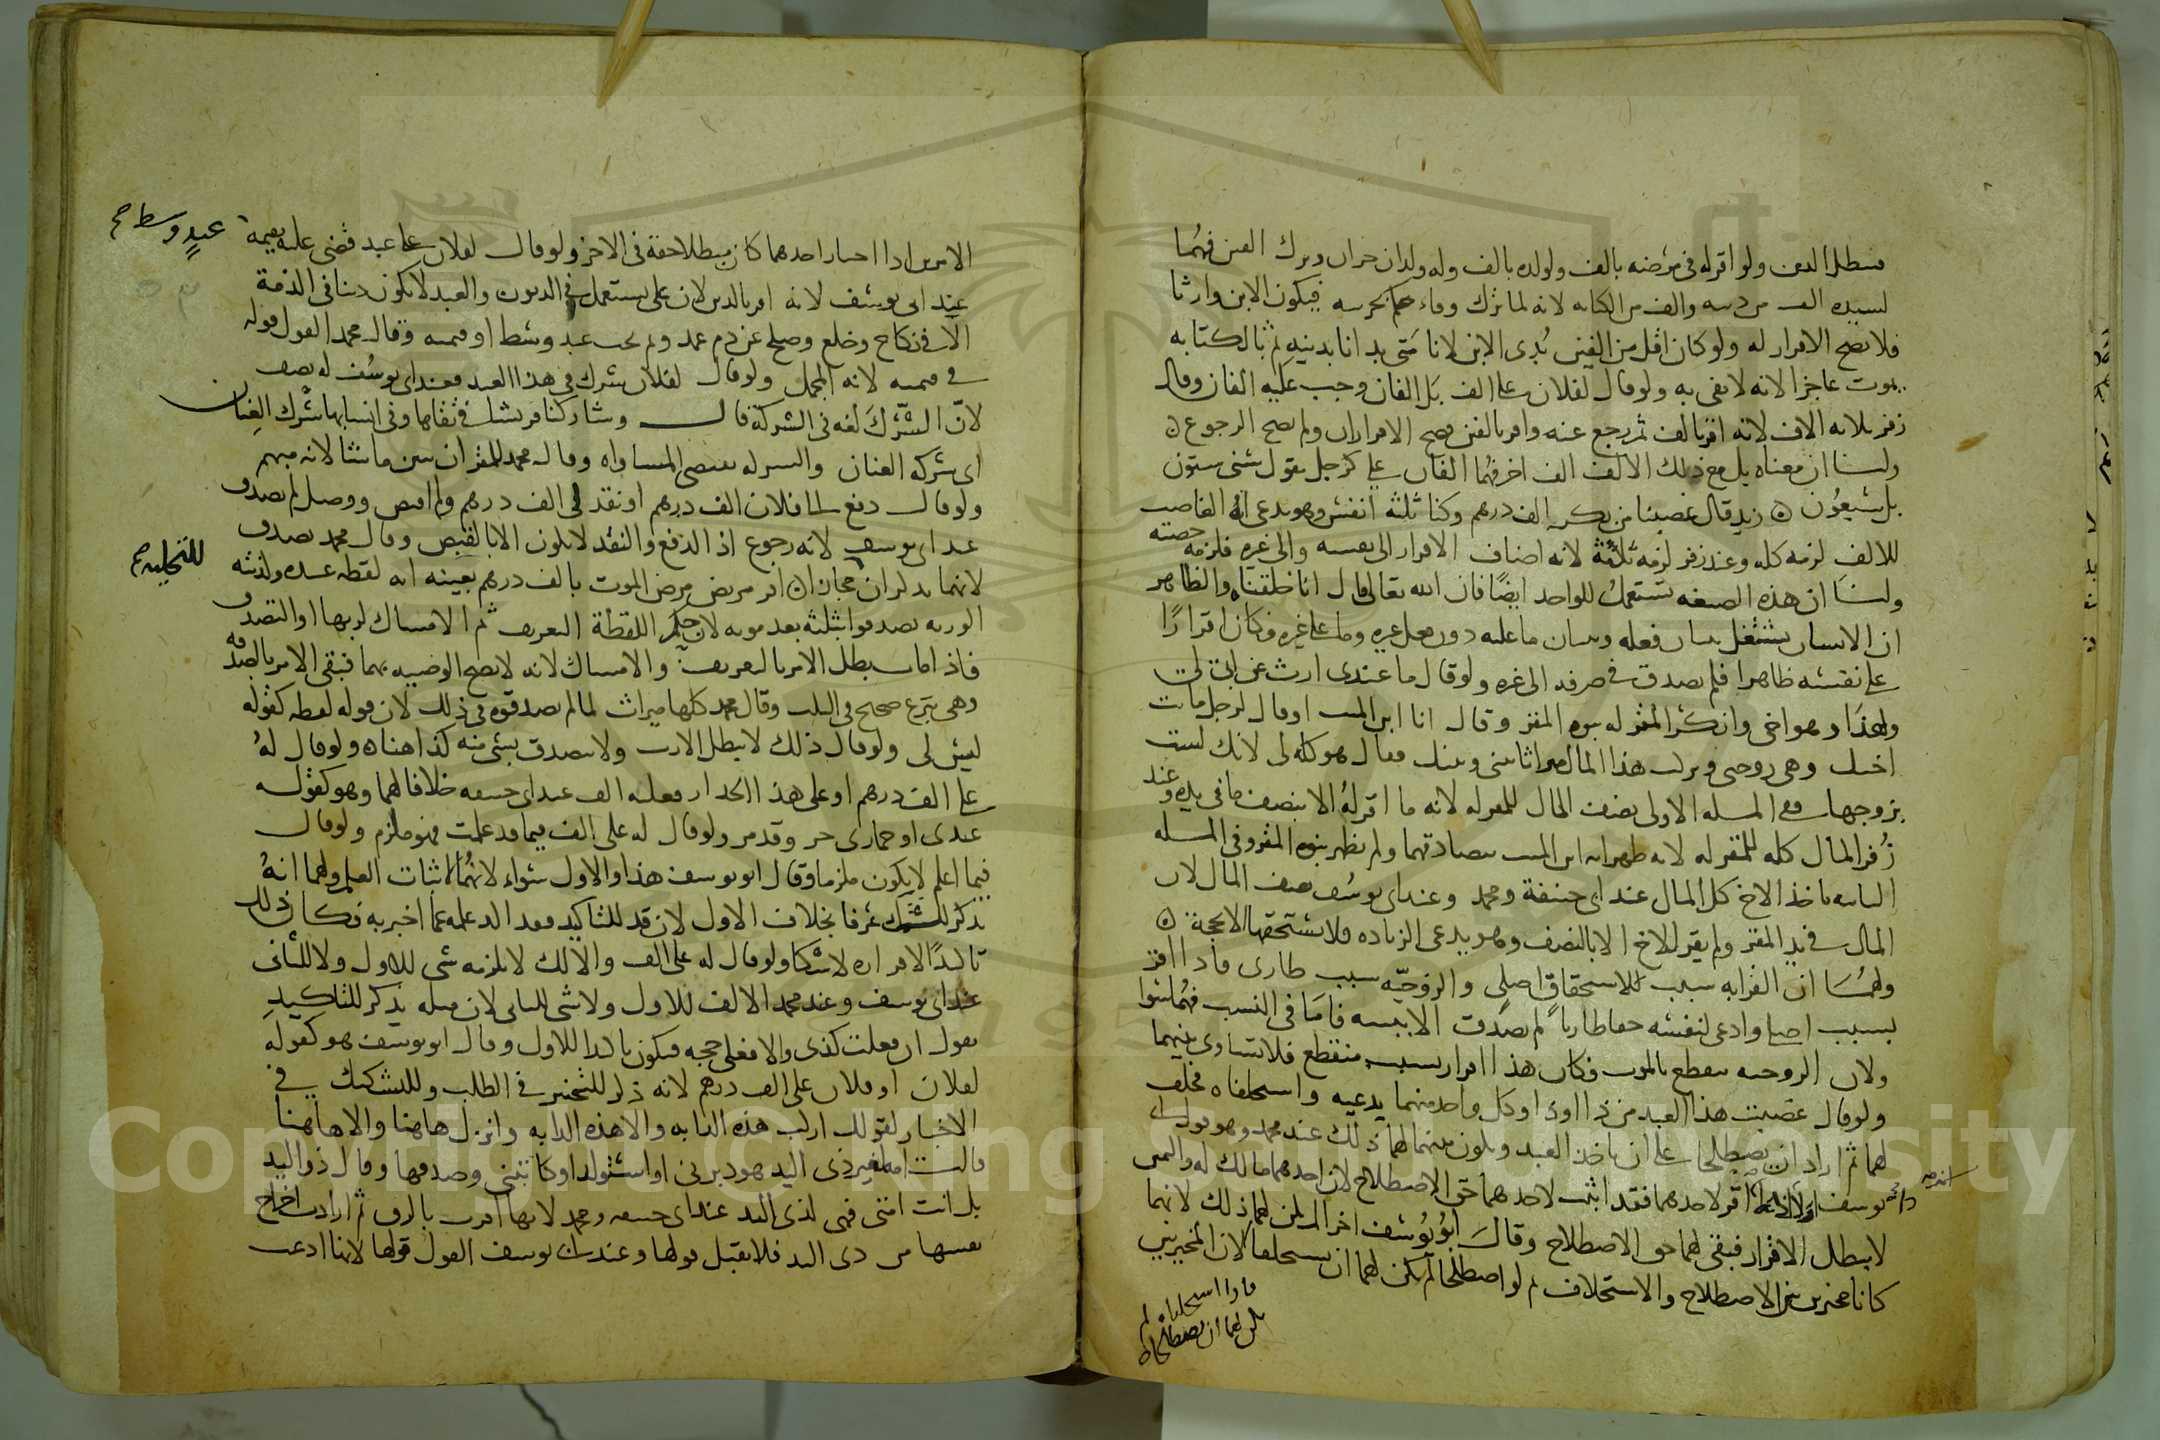 فيبطل الدين ولو اقر له في مرضه بالف ولولده بالف وله ولدان حران وترك الفين فهما
لسيده الف من دينه والف من الكتابه لانه لما ترك وفاء حكم بحريته فيكون الابن وارثا
فلا يصح الاقرار له ولو كان اقل من الفين بدى الابن لانا متى بدانا بدينه ثم بالكتابه
يموت عاجزا لانه لا يفى به ولو قال لفلان على الف بل الفان وجب عليه الفان وقال
زفر ثلاثه الاف لانه اقر بالف ثم رجع عنه واقر بالفين فصح الاقراران ولم يصح الرجوع
ولنا ان معناه بل مع ذلك الالف الف اخر فهما الفان على كرجل يقول سنى ستون
بل سبعون زيد قال غصبنا من بكر الف درهم وكنا ثلثة انفس وهو يدعى انه الغاصب
للالف لزمه كله وعند زفر لزمه ثلثه لانه اضاف الاقرار الى نفسه والى غيره فلزمه حصته
ولنا ان هذه الصيغه تستعمل للواحد ايضا قال الله تعالى انا خلقناه والظاهر
ان الانسان يشتغل ببيان فعله وبيان ما عليه دون فعل غيره وما على غيره فكان اقرارا
على نفسه ظاهرا فلم يصدق في صرفه الى غيره ولو قال ما عندى ارث عن ابى لى
ولهذا وهو اخى وانكر المقر له بنوه المقر وقال انا ابن الميت او قال لرجل ماتت
اختك وهى زوجتى وتركت هذا المال ميراثا بينى وبينك فقال هو كله لى لانك لست
بزوجها ففى المسله الاولى نصف المال للمقر له لانه ما اقر له الا بنصف ما في يده وعند
زفر المال كله للمقر له لانه ظهر انه ابن الميت بتصادقهما ولم يظهر بنوه المقر وفى المسله
الثانيه ياخذ الاخ كل المال عند ابى حنيفة ومحمد وعند ابى يوسف نصف المال لان
المال في يد المقر ولم يقر للاخ الا بالنصف وهو يدعى الزياده فلا يستحقها الا بحجة
ولهما ان القرابه سبب للاستحقاق اصلى والزوجيه سبب طارى فاذا اقر
بسبب اصلى وادعى لنفسه حقا طاريا لم يصدق الا ببينه فاما في النسب فهما سوا
ولان الزوجيه تنقطع بالموت فكان هذا اقرار بسبب منقطع فلا تساوى بينهما
ولو قال غصبت هذا العبد من ذا او ذا وكل واحد منهما يدعيه واستحلفاه فحلف
لهما ثم اراد ان يصطلحا على ان ياخذا العبد ويكون بينهما لهما ذلك عند محمد وهو قول ابى
يوسف اولا لانه اقر لاحدهما فقد اثبت لاحدهما حق الاصطلاح لان احدهما مالك له واليمين
لا يبطل الاقرار فبقى لهما حق الاصطلاح وقال ابو يوسف اخرا لم يكن لهما ذلك لانهما
كانا مخيرين بين الاصطلاح والاستحلاف ثم لو اصطلحا لم يكن لهما ان يستحلفا لان المخير بين
فاذا استحلفاه لم
يكن لهما ان يصطلحا
الامرين اذا اختار احدهما كان مبطلا حقه في الاخر ولو قال لفلان على عبد قضى عليه بقيمة عبد وسط صح
عند ابى يوسف لانه اقر بالدين لان على يستعمل في الديون والعبد لا يكون دينا في الذمة
الا في نكاح وخلع وصلح عن دم عمد وثم يجب عبد وسط او قيمته وقال محمد القول قوله
في قيمته لانه المجمل ولو قال لفلان شرك في هذا العبد فعند ابى يوسف له نصفه
لان الشرك لغه في الشركة قال وشاركنا قريشا في تقاها وفى انسابها شرك العنان
اى شركه العنان والشركه تقتضى المساواه وقال محمد للمقر ان يبين ما شا لانه مبهم
ولو قال دفع الى فلان الف درهم او نقد لى الف درهم ولم اقبض ووصل لم يصدق
عند ابى يوسف لانه رجوع اذ الدفع والنقد لا يكون الا بالقبض وقال محمد يصدق
لانهما يذكران مجازا اقر مريض مرض الموت بالف درهم بعينه انه لقطه عنده ولذبته
للتخليه صح
الورثه تصدقوا بثلثه بعد موته لان حكم اللقطة التعريف ثم الامساك لربها او التصدق
فاذا مات بطل الامر بالتعريف والامساك لانه لا يصح الوصيه بهما فبقى الامر بالصدقه
وهى تبرع صحيح في الثلث وقال محمد كلها ميراث لما لم يصدقوه في ذلك لان قوله لقطه كقوله
ليس لى ولو قال ذلك لا يبطل الارث ولا يتصدق بشى منه كذا هناه ولو قال له
على الف درهم او على هذا الجدار فعليه الف عند ابى حنيفه خلافا لهما وهو كقوله
عبدى او حمارى حر وقد مر ولو قال له على الف فيما قد علمت فهو ملزم ولو قال
فيما اعلم لا يكون ملزما وقال ابو يوسف هذا والاول سواء لانهما لاثبات العلم ولهما انه
يذكر للشك عرفا بخلاف الاول لان قد للتاكيد فقد اكد علمه بما اخبر به فكان ذلك
تاكيدا لاقراره لا شكا ولو قال له على الف والا لك لا يلزمه شى للاول ولا للثانى
عند ابى يوسف وعند محمد الالف للاول ولا شى للثانى لان مثله يذكر للتاكيد
يقول ان فعلت كذى والا فعلى حجه فيكون تاكيدا للاول وقال ابو يوسف هو كقوله
لفلان او فلان على الف درهم لانه ذكر للتخيير في الطلب وللتشكيك في
الاخبار لقولك اركب هذه الدابه والا هذه الدابه وانزل هاهنا والا هاهنا
قالت امه لغير ذى اليد هو دبرنى او استولد او كاتبنى وصدقها وقال ذو اليد
بل انت امتى فهى لذى اليد عند ابى حنيفه ومحمد لانها اقرت بالرق ثم ارادت اخراج
نفسها من ذى اليد فلا يقبل قولها وعند ابى يوسف القول قولها لانها ادعت
Copyright © King Saud University
1957